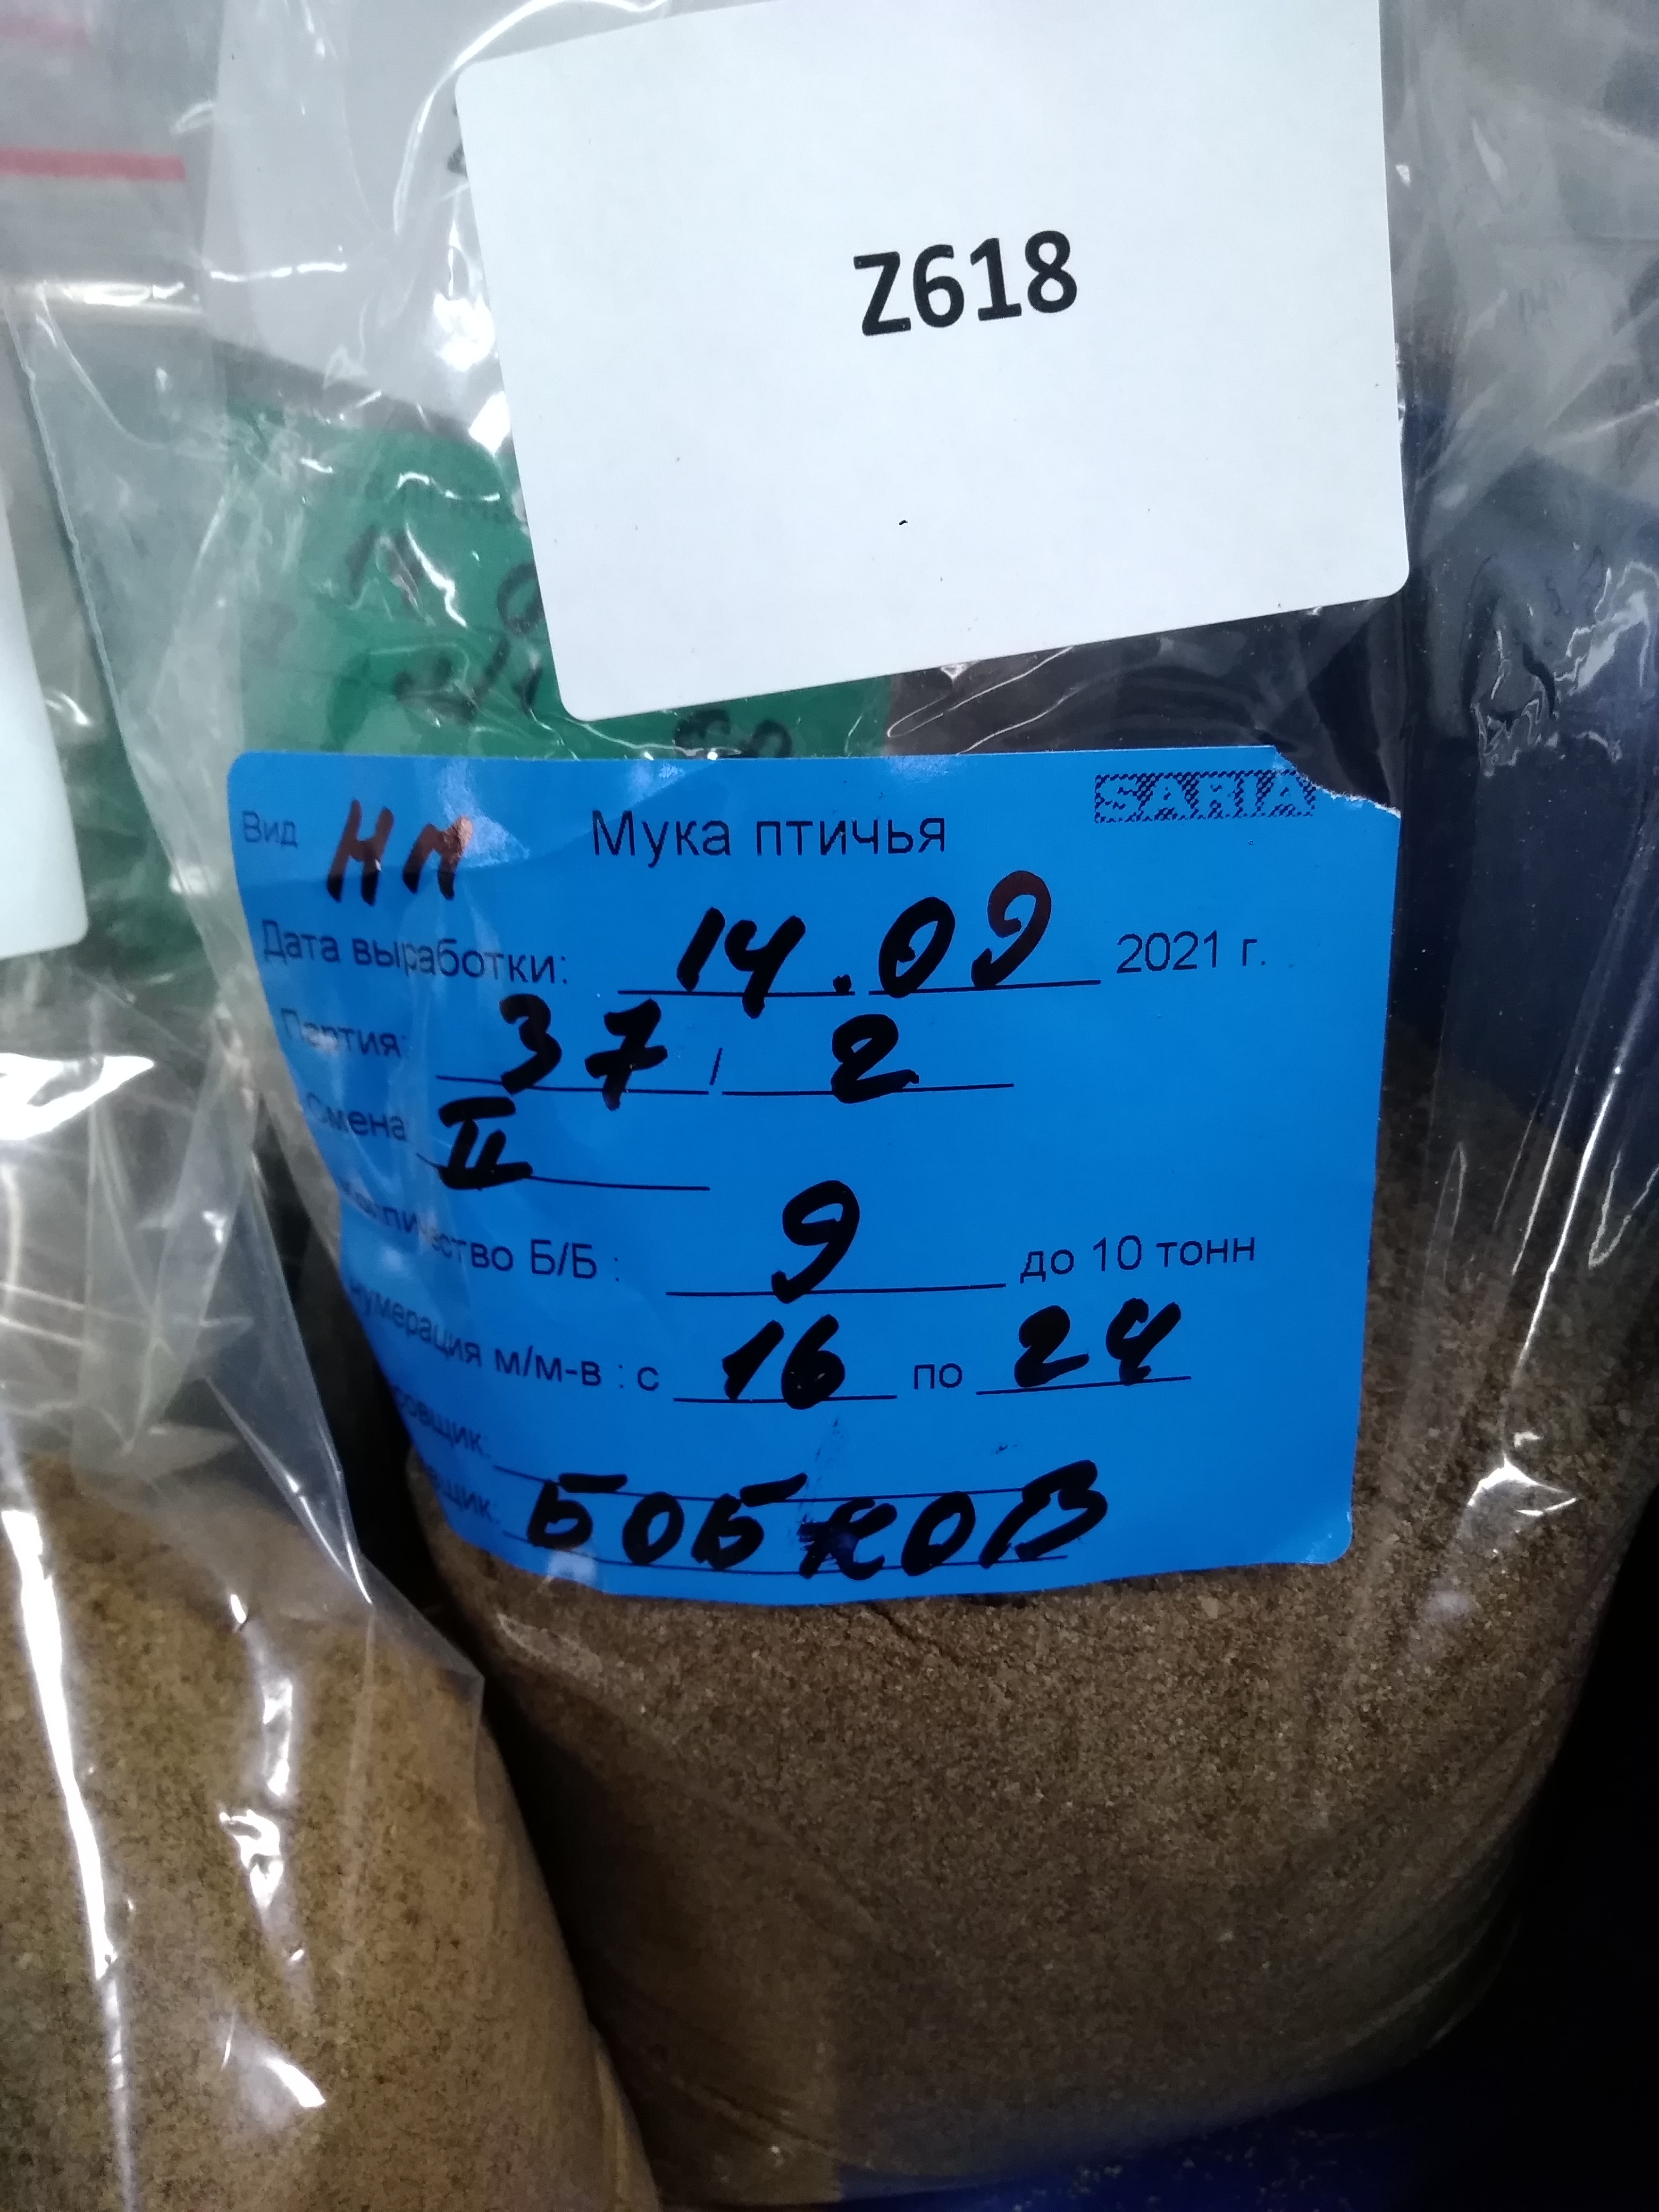 Z618
SARIA
Вид НМ Мука птичья
Дата выработки: 14.09 2021 г.
Партия: 37 / 2
Смена II
Количество Б/Б : 9 до 10 тонн
нумерация м/м-в : с 16 по 24
Бобков